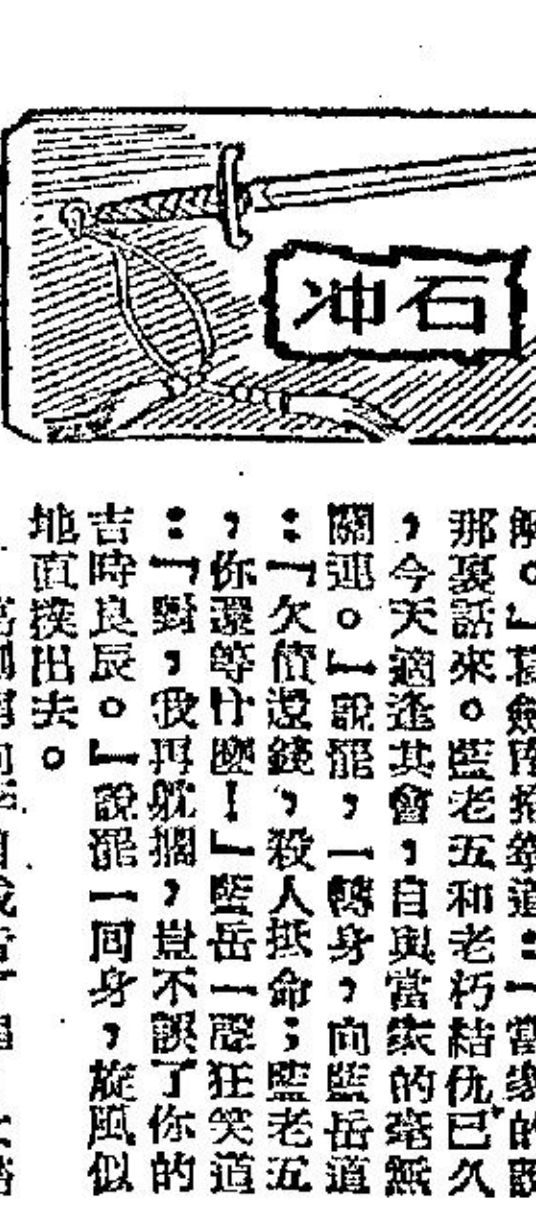 石冲
解。』葛劍南抱拳道:『當家的說
那裏話來。藍老五和老朽結仇已久
,今天適逢其會,自與當家的毫無
關連。』說罷,一轉身,向藍岳道
:『欠債還錢,殺人抵命;藍老五
,你還等什麽!』藍岳一聲狂笑道
:『對,我再躭擱,豈不誤了你的
吉時良辰。』說罷一囘身,旋風似
地直出去。